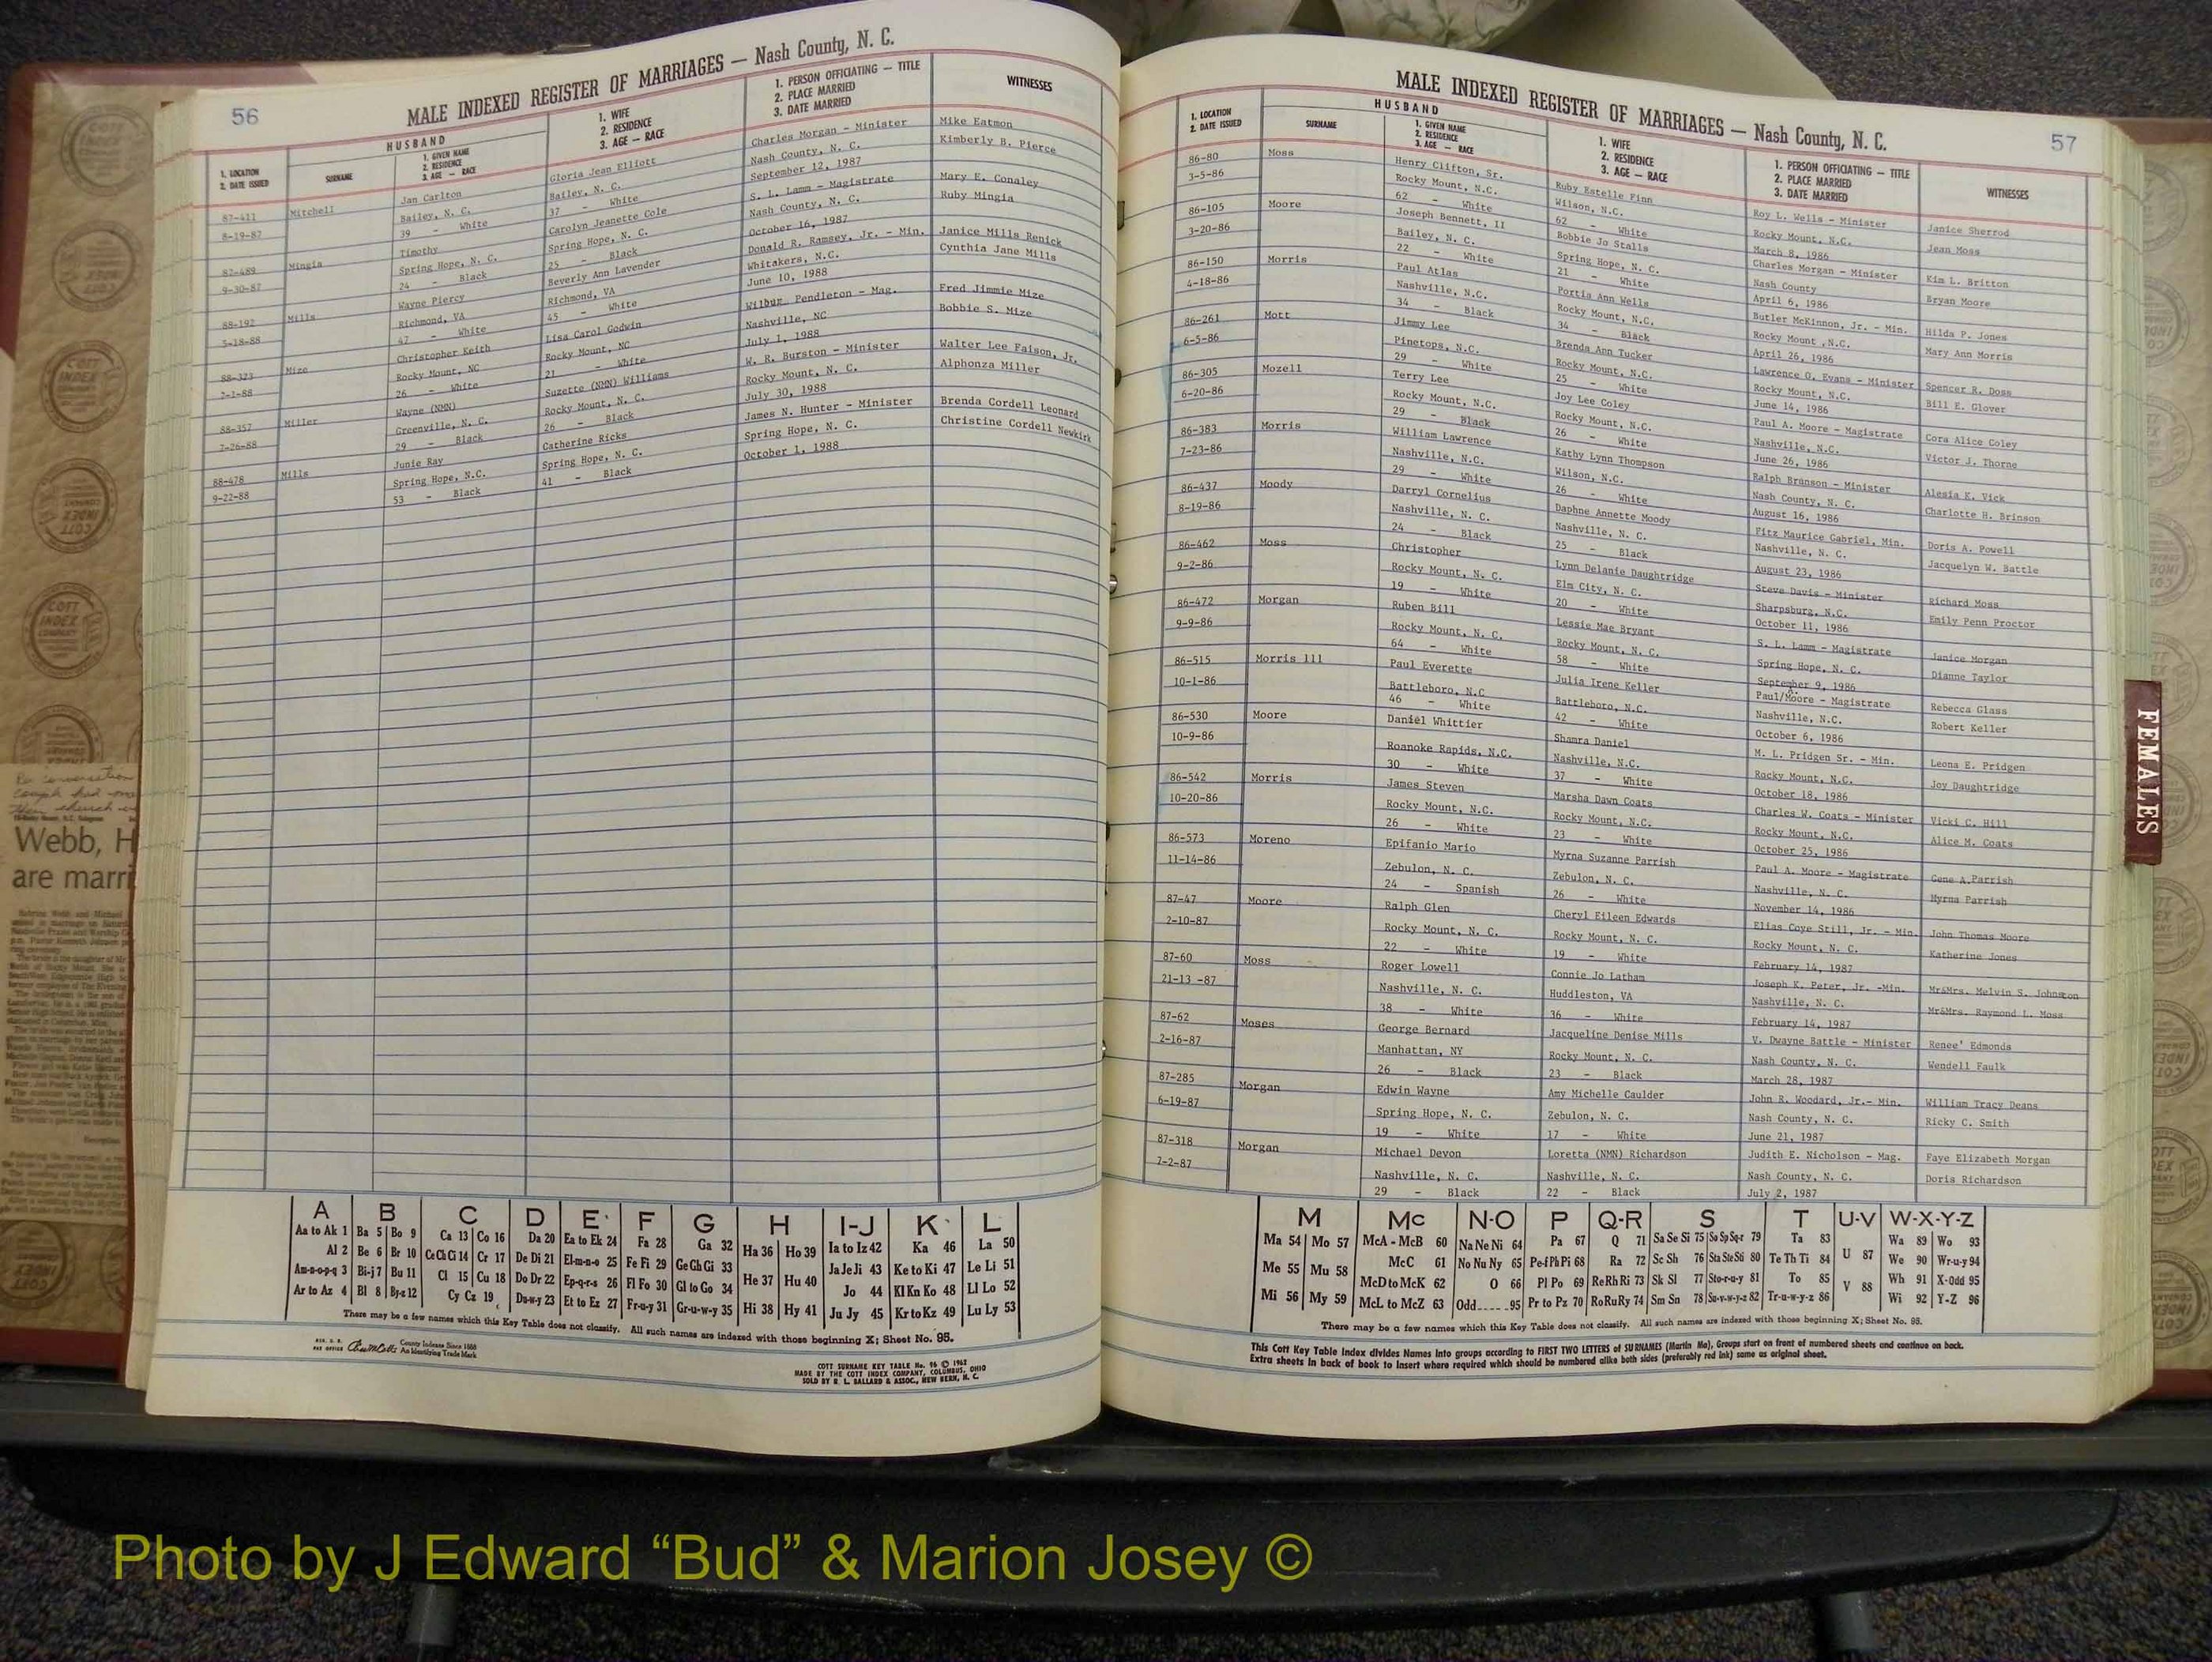 56
MALE INDEXED REGISTER OF MARRIAGES — Nash County, N. C.
1. LOCATION
2. DATE ISSUED
HUSBAND
SURNAME
1. GIVEN NAME
2. RESIDENCE
3. AGE — RACE
1. WIFE
2. RESIDENCE
3. AGE — RACE
1. PERSON OFFICIATING — TITLE
2. PLACE MARRIED
3. DATE MARRIED
WITNESSES
87-411 Mitchell Jan Carlton Gloria Jean Elliott Charles Morgan - Minister Mike Eatmon
8-19-87 Bailey, N. C. Bailey, N. C. Nash County, N. C. Kimberly B. Pierce
39 - White 37 - White September 12, 1987
87-489 Mingia Timothy Carolyn Jeanette Cole S. L. Lamm - Magistrate Mary E. Conaley
9-30-87 Spring Hope, N. C. Spring Hope, N. C. Nash County, N. C. Ruby Mingia
24 - Black 25 - Black October 16, 1987
88-192 Mills Wayne Piercy Beverly Ann Lavender Donald R. Ramsey, Jr. - Min. Janice Mills Renick
5-18-88 Richmond, VA Richmond, VA Whitakers, N.C. Cynthia Jane Mills
47 - White 45 - White June 10, 1988
88-323 Mize Christopher Keith Lisa Carol Godwin Wilbur Pendleton - Mag. Fred Jimmie Mize
7-1-88 Rocky Mount, NC Rocky Mount, NC Nashville, NC Bobbie S. Mize
26 - White 21 - White July 1, 1988
88-357 Miller Wayne (NMN) Suzette (NMN) Williams W. R. Burston - Minister Walter Lee Faison, Jr.
7-26-88 Greenville, N. C. Rocky Mount, N. C. Rocky Mount, N. C. Alphonza Miller
29 - Black 26 - Black July 30, 1988
88-478 Mills Junie Ray Catherine Ricks James N. Hunter - Minister Brenda Cordell Leonard
9-22-88 Spring Hope, N.C. Spring Hope, N. C. Spring Hope, N. C. Christine Cordell Newkirk
53 - Black 41 - Black October 1, 1988
A B C D E F G H I-J K L
Aa to Ak 1 Ba 5 Bo 9 Ca 13 Co 16 Da 20 Ea to Ek 24 Fa 28 Ga 32 Ha 36 Ho 39 Ia to Iz 42 Ka 46 La 50
Al 2 Be 6 Br 10 Ce Ch Ci 14 Cr 17 De Di 21 El-m-n-o 25 Fe Fi 29 Ge Gh Gi 33 He 37 Hu 40 Ja Je Ji 43 Ke to Ki 47 Le Li 51
Am-n-o-p-q 3 Bi-j 7 Bu 11 Cl 15 Cu 18 Do Dr 22 Ep-q-r-s 26 Fl Fo 30 Gl to Go 34 Jo 44 Kl Kn Ko 48 Ll Lo 52
Ar to Az 4 Bl 8 By-z 12 Cy Cz 19 Du-w-y 23 Et to Ez 27 Fr-u-y 31 Gr-u-w-y 35 Hi 38 Hy 41 Ju Jy 45 Kr to Kz 49 Lu Ly 53
There may be a few names which this Key Table does not classify. All such names are indexed with those beginning X; Sheet No. 95.
County Indexes Since 1888
An Identifying Trade Mark
COTT SURNAME KEY TABLE No. 96 © 1962
MADE BY THE COTT INDEX COMPANY, COLUMBUS, OHIO
SOLD BY R. L. BALLARD & ASSOC., NEW BERN, N. C.
57
MALE INDEXED REGISTER OF MARRIAGES — Nash County, N. C.
1. LOCATION
2. DATE ISSUED
HUSBAND
SURNAME
1. GIVEN NAME
2. RESIDENCE
3. AGE — RACE
1. WIFE
2. RESIDENCE
3. AGE — RACE
1. PERSON OFFICIATING — TITLE
2. PLACE MARRIED
3. DATE MARRIED
WITNESSES
86-80 Moss Henry Clifton, Sr. Ruby Estelle Finn Roy L. Wells - Minister Janice Sherrod
3-5-86 Rocky Mount, N.C. Wilson, N.C. Rocky Mount, N.C. Jean Moss
62 - White 62 - White March 8, 1986
86-105 Moore Joseph Bennett, II Bobbie Jo Stalls Charles Morgan - Minister Kim L. Britton
3-20-86 Bailey, N. C. Spring Hope, N. C. Nash County Bryan Moore
22 - White 21 - White April 6, 1986
86-150 Morris Paul Atlas Portia Ann Wells Butler McKinnon, Jr. - Min. Hilda P. Jones
4-18-86 Nashville, N.C. Rocky Mount, N.C. Rocky Mount ,N.C. Mary Ann Morris
34 - Black 34 - Black April 26, 1986
86-261 Mott Jimmy Lee Brenda Ann Tucker Lawrence O. Evans - Minister Spencer R. Doss
6-5-86 Pinetops, N.C. Rocky Mount, N.C. Rocky Mount, N.C. Bill E. Glover
29 - White 25 - White June 14, 1986
86-305 Mozell Terry Lee Joy Lee Coley Paul A. Moore - Magistrate Cora Alice Coley
6-20-86 Rocky Mount, N.C. Rocky Mount, N.C. Nashville, N.C. Victor J. Thorne
29 - Black 26 - White June 26, 1986
86-383 Morris William Lawrence Kathy Lynn Thompson Ralph Branson - Minister Alesia K. Vick
7-23-86 Nashville, N.C. Wilson, N.C. Nash County, N. C. Charlotte H. Brinson
29 - White 26 - White August 16, 1986
86-437 Moody Darryl Cornelius Daphne Annette Moody Fitz Maurice Gabriel, Min. Doris A. Powell
8-19-86 Nashville, N. C. Nashville, N. C. Nashville, N. C. Jacquelyn W. Battle
24 - Black 25 - Black August 23, 1986
86-462 Moss Christopher Lynn Delanie Daughtridge Steve Davis - Minister Richard Moss
9-2-86 Rocky Mount, N. C. Elm City, N. C. Sharpsburg, N.C. Emily Penn Proctor
19 - White 20 - White October 11, 1986
86-472 Morgan Ruben Bill Lessie Mae Bryant S. L. Lamm - Magistrate Janice Morgan
9-9-86 Rocky Mount, N. C. Rocky Mount, N. C. Spring Hope, N. C. Dianne Taylor
64 - White 58 - White September 9, 1986
86-515 Morris 111 Paul Everette Julia Irene Keller Paul/A. Moore - Magistrate Rebecca Glass
10-1-86 Battleboro, N.C Battleboro, N.C. Nashville, N.C. Robert Keller
46 - White 42 - White October 6, 1986
86-530 Moore Daniel Whittier Shamra Daniel M. L. Pridgen Sr. - Min. Leona E. Pridgen
10-9-86 Roanoke Rapids, N.C. Nashville, N.C. Rocky Mount, N.C. Joy Daughtridge
30 - White 37 - White October 18, 1986
86-542 Morris James Steven Marsha Dawn Coats Charles W. Coats - Minister Vicki C. Hill
10-20-86 Rocky Mount, N.C. Rocky Mount, N.C. Rocky Mount, N.C. Alice M. Coats
26 - White 23 - White October 25, 1986
86-573 Moreno Epifanio Mario Myrna Suzanne Parrish Paul A. Moore - Magistrate Gene A.Parrish
11-14-86 Zebulon, N. C. Zebulon, N. C. Nashville, N. C. Myrna Parrish
24 - Spanish 26 - White November 14, 1986
87-47 Moore Ralph Glen Cheryl Eileen Edwards Elias Coye Still, Jr. - Min. John Thomas Moore
2-10-87 Rocky Mount, N. C. Rocky Mount, N. C. Rocky Mount, N. C. Katherine Jones
22 - White 19 - White February 14, 1987
87-60 Moss Roger Lowell Connie Jo Latham Joseph K. Peter, Jr. -Min. Mr&Mrs. Melvin S. Johnston
21-13 -87 Nashville, N. C. Huddleston, VA Nashville, N. C. Mr&Mrs. Raymond L. Moss
38 - White 36 - White February 14, 1987
87-62 Moses George Bernard Jacqueline Denise Mills V. Dwayne Battle - Minister Renee' Edmonds
2-16-87 Manhattan, NY Rocky Mount, N. C. Nash County, N. C. Wendell Faulk
26 - Black 23 - Black March 28, 1987
87-285 Morgan Edwin Wayne Amy Michelle Caulder John R. Woodard, Jr.- Min. William Tracy Deans
6-19-87 Spring Hope, N. C. Zebulon, N. C. Nash County, N. C. Ricky C. Smith
19 - White 17 - White June 21, 1987
87-318 Morgan Michael Devon Loretta (NMN) Richardson Judith E. Nicholson - Mag. Faye Elizabeth Morgan
7-2-87 Nashville, N. C. Nashville, N. C. Nash County, N. C. Doris Richardson
29 - Black 22 - Black July 2, 1987
M Mc N-O P Q-R S T U-V W-X-Y-Z
Ma 54 Mo 57 McA - McB 60 Na Ne Ni 64 Pa 67 Q 71 Sa Se Si 75 So Sp Sq-r 79 Ta 83 U 87 Wa 89 Wo 93
Me 55 Mu 58 McC 61 No Nu Ny 65 Pe-f Ph Pi 68 Ra 72 Sc Sh 76 Sta Ste Sti 80 Te Th Ti 84 We 90 Wr-u-y 94
McD to McK 62 O 66 Pl Po 69 Re Rh Ri 73 Sk Sl 77 Sto-r-u-y 81 To 85 V 88 Wh 91 X-Odd 95
Mi 56 My 59 McL to McZ 63 Odd.....95 Pr to Pz 70 Ro Ru Ry 74 Sm Sn 78 Su-v-w-y-z 82 Tr-u-w-y-z 86 Wi 92 Y-Z 96
There may be a few names which this Key Table does not classify. All such names are indexed with those beginning X; Sheet No. 95.
This Cott Key Table Index divides Names into groups according to FIRST TWO LETTERS of SURNAMES (Martin Ma), Groups start on front of numbered sheets and continue on back.
Extra sheets in back of book to insert where required which should be numbered alike both sides (preferably red ink) same as original sheet.
FEMALES
COTT
INDEX
COMPANY
Webb, H
are marri
Photo by J Edward “Bud” & Marion Josey ©